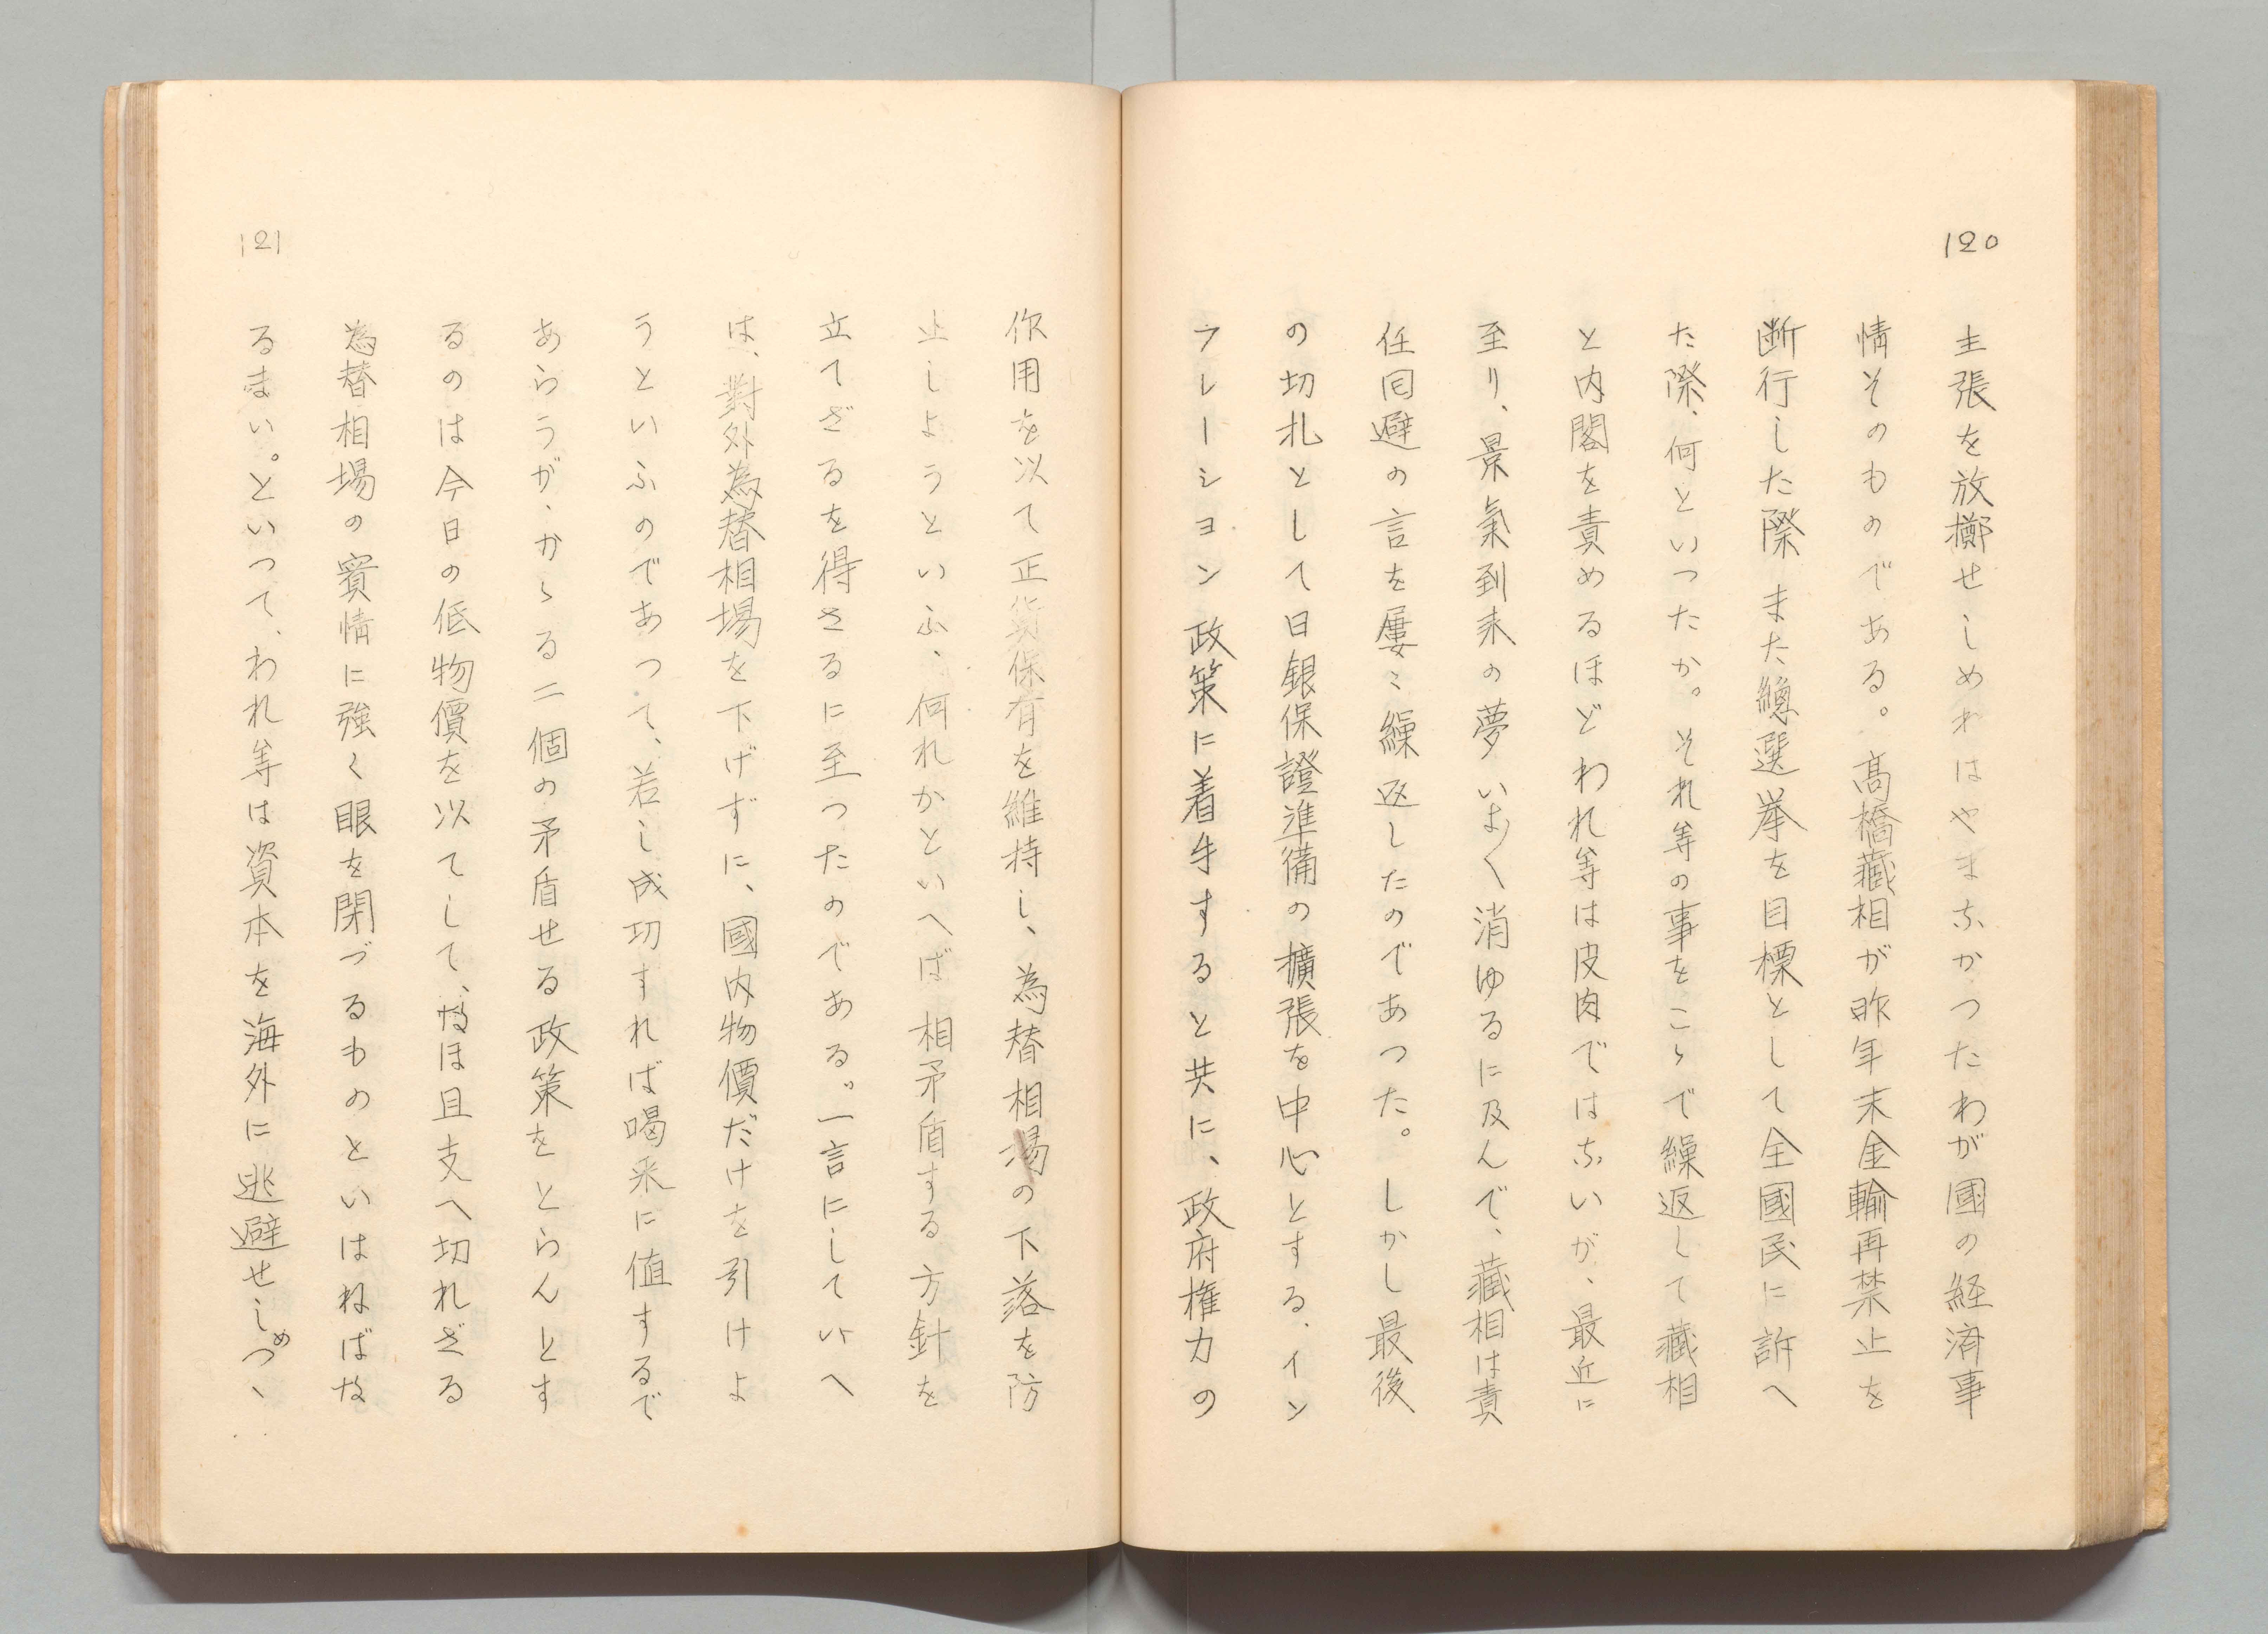 120
主張を放擲せしめねはやまなかつたわが國の経済事
情そのものである。高橋藏相が昨年末金輸再禁止を
断行した際また總選挙を目標として全國民に訴へ
た際、何といつたか。それ等の事をこゝで繰返して藏相
と内閣を責めるほどわれ等は皮肉ではないが、最近に
至り、景氣到来の夢いよ〱消ゆるに及んで、藏相は責
任回避の言を屢〻繰返したのであつた。しかし最後
の切札として日銀保證準備の擴張を中心とする、イン
フレーション政策に着手すると共に、政府権力の
作用を以て正貨保有を維持し、為替相場の下落を防
止しようといふ、何れかといへば相矛盾する方針を
立てざるを得ざるに至つたのである。一言にしていへ
は、對外為替相場を下げずに、國内物價だけを引けよ
うといふのであつて、若し成功すれば喝采に値するで
あらうが、かゝる二個の矛盾せる政策をとらんとす
るのは今日の低物價を以てして、なほ且支へ切れざる
為替相場の實情に強く眼を閉づるものといはねばな
るまい。といつて、われ等は資本を海外に逃避せしめつゝ
121